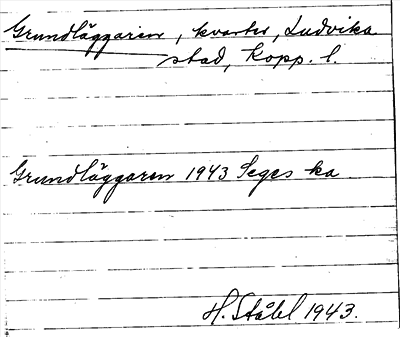 Grundläggaren, kvarter, Ludvika
stad, Kopp. l.
Grundläggaren 1943 Seges ka
H. Ståhl 1943.